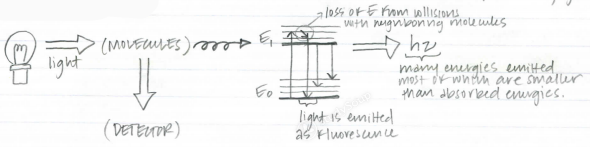 loss of E from collisions
with neighboring molecules
light
(MOLECULES)
E₁
hν
many energies emitted
most of which are smaller
than absorbed energies.
E₀
light is emitted
as fluorescence
(DETECTOR)